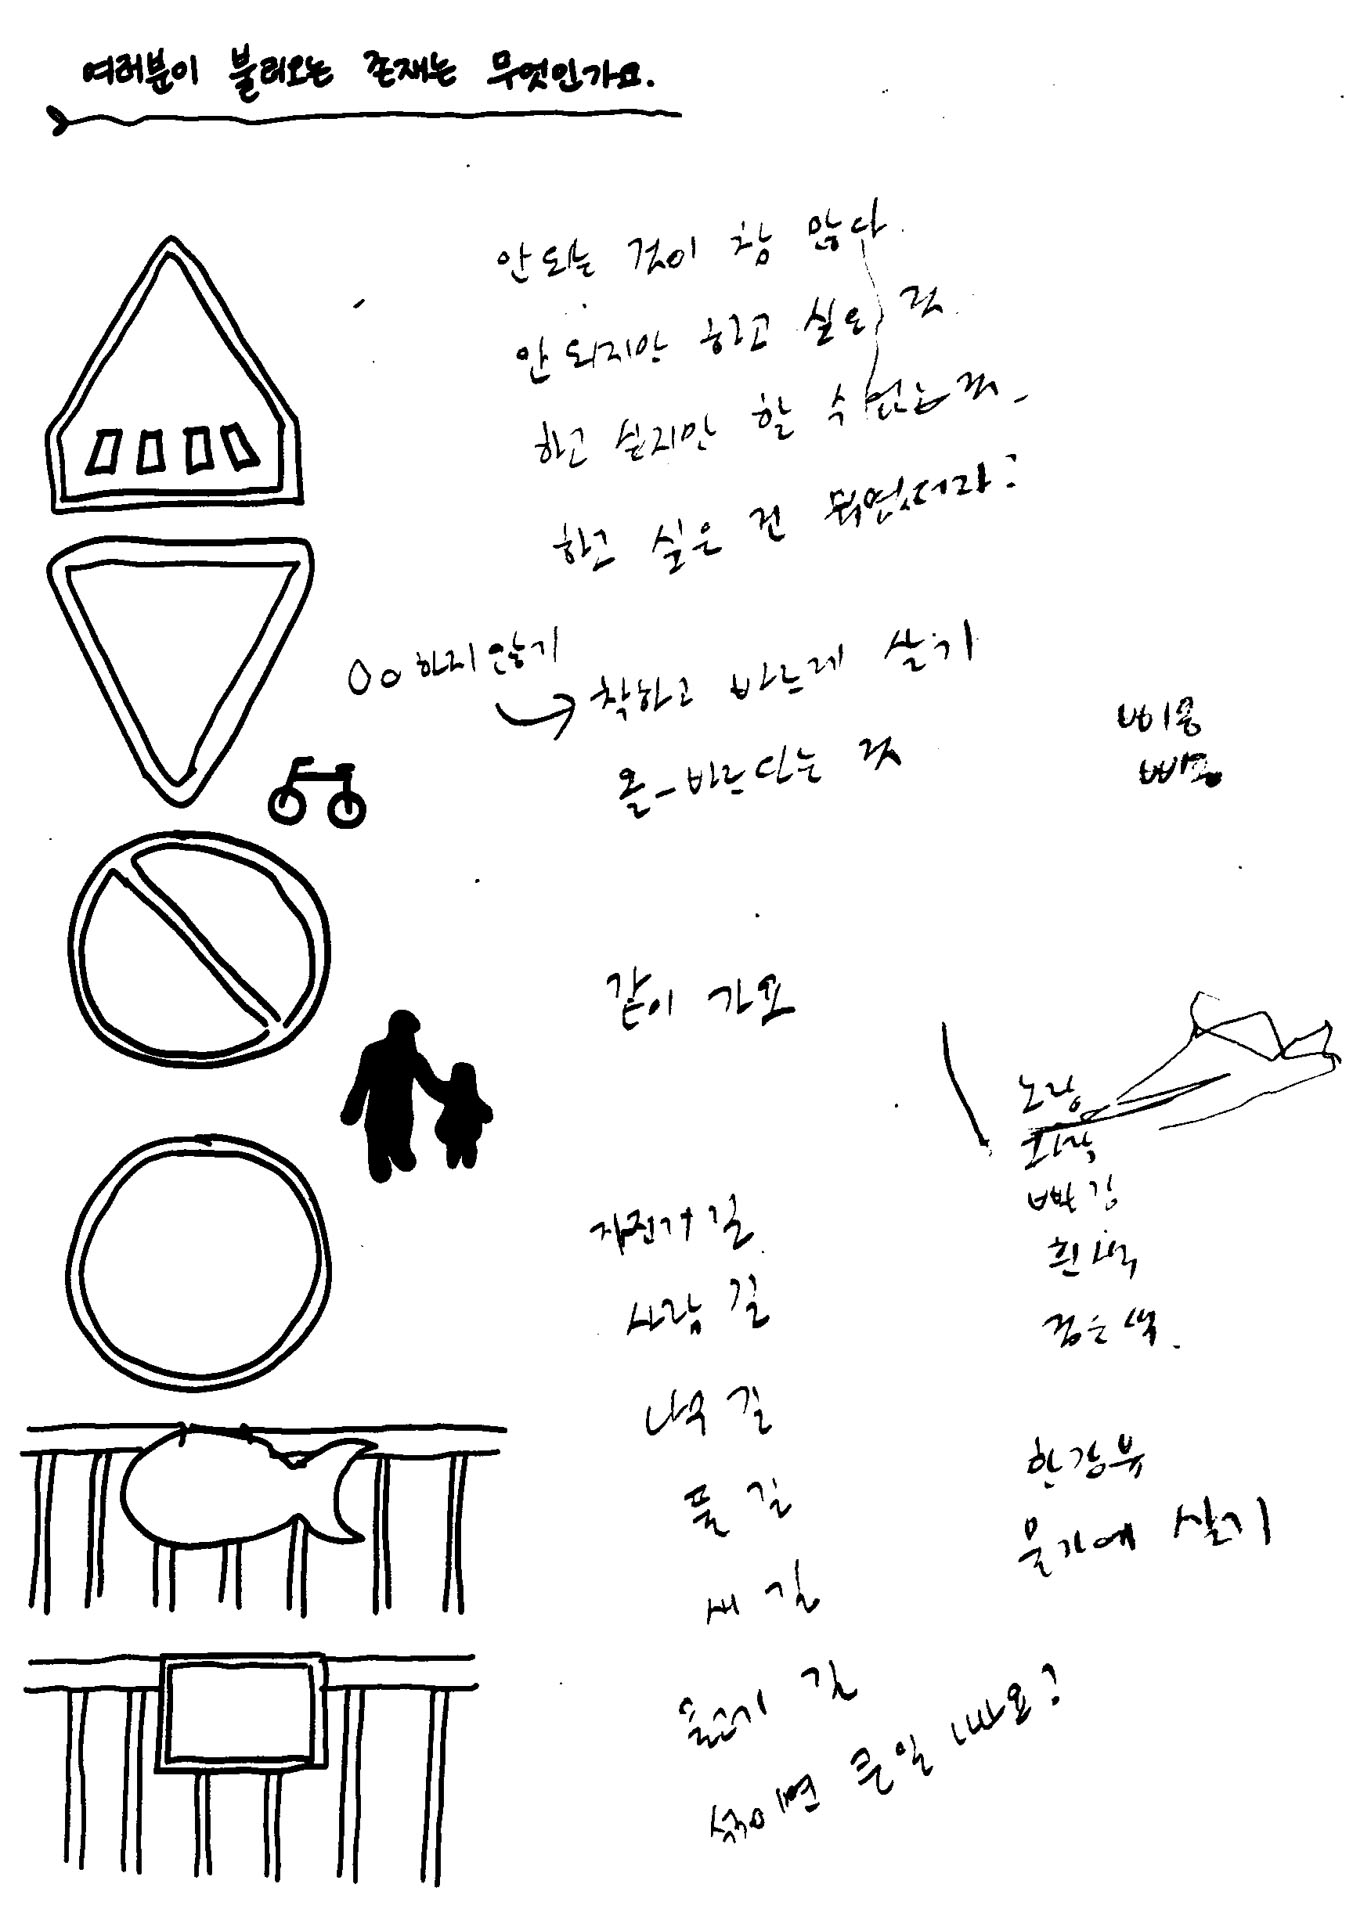 여러분이 불러오는 존재는 무엇인가요.
안 되는 것이 참 많다.
안 되지만 하고 싶은 것.
하고 싶지만 할 수 없는 것.
하고 싶은 건 뭐였더라?
OO하지 않기
착하고 바르게 살기
올-바르다는 것
삐용
삐용
같이 가요
노랑
파랑
빨강
흰색
검은색.
자전거 길
사람 길
나무 길
풀 길
새 길
물고기 길
섞이면 큰일 나요?
한강뷰
물가에 살기